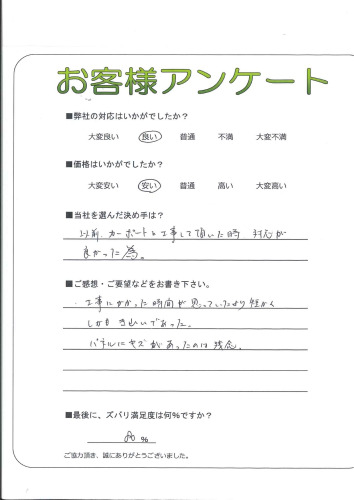 お客様アンケート
■弊社の対応はいかがでしたか？
大変良い 良い 普通 不満 大変不満
■価格はいかがでしたか？
大変安い 安い 普通 高い 大変高い
■当社を選んだ決め手は？
以前、カーポートを工事して頂いた時 対応が
良かった為。
■ご感想・ご要望などをお書き下さい。
・工事にかかった時間が思っていたより短かく
しかもきれいであった。
パネルにキズがあったのは残念。
■最後に、ズバリ満足度は何%ですか？
%
ご協力頂き、誠にありがとうございました。